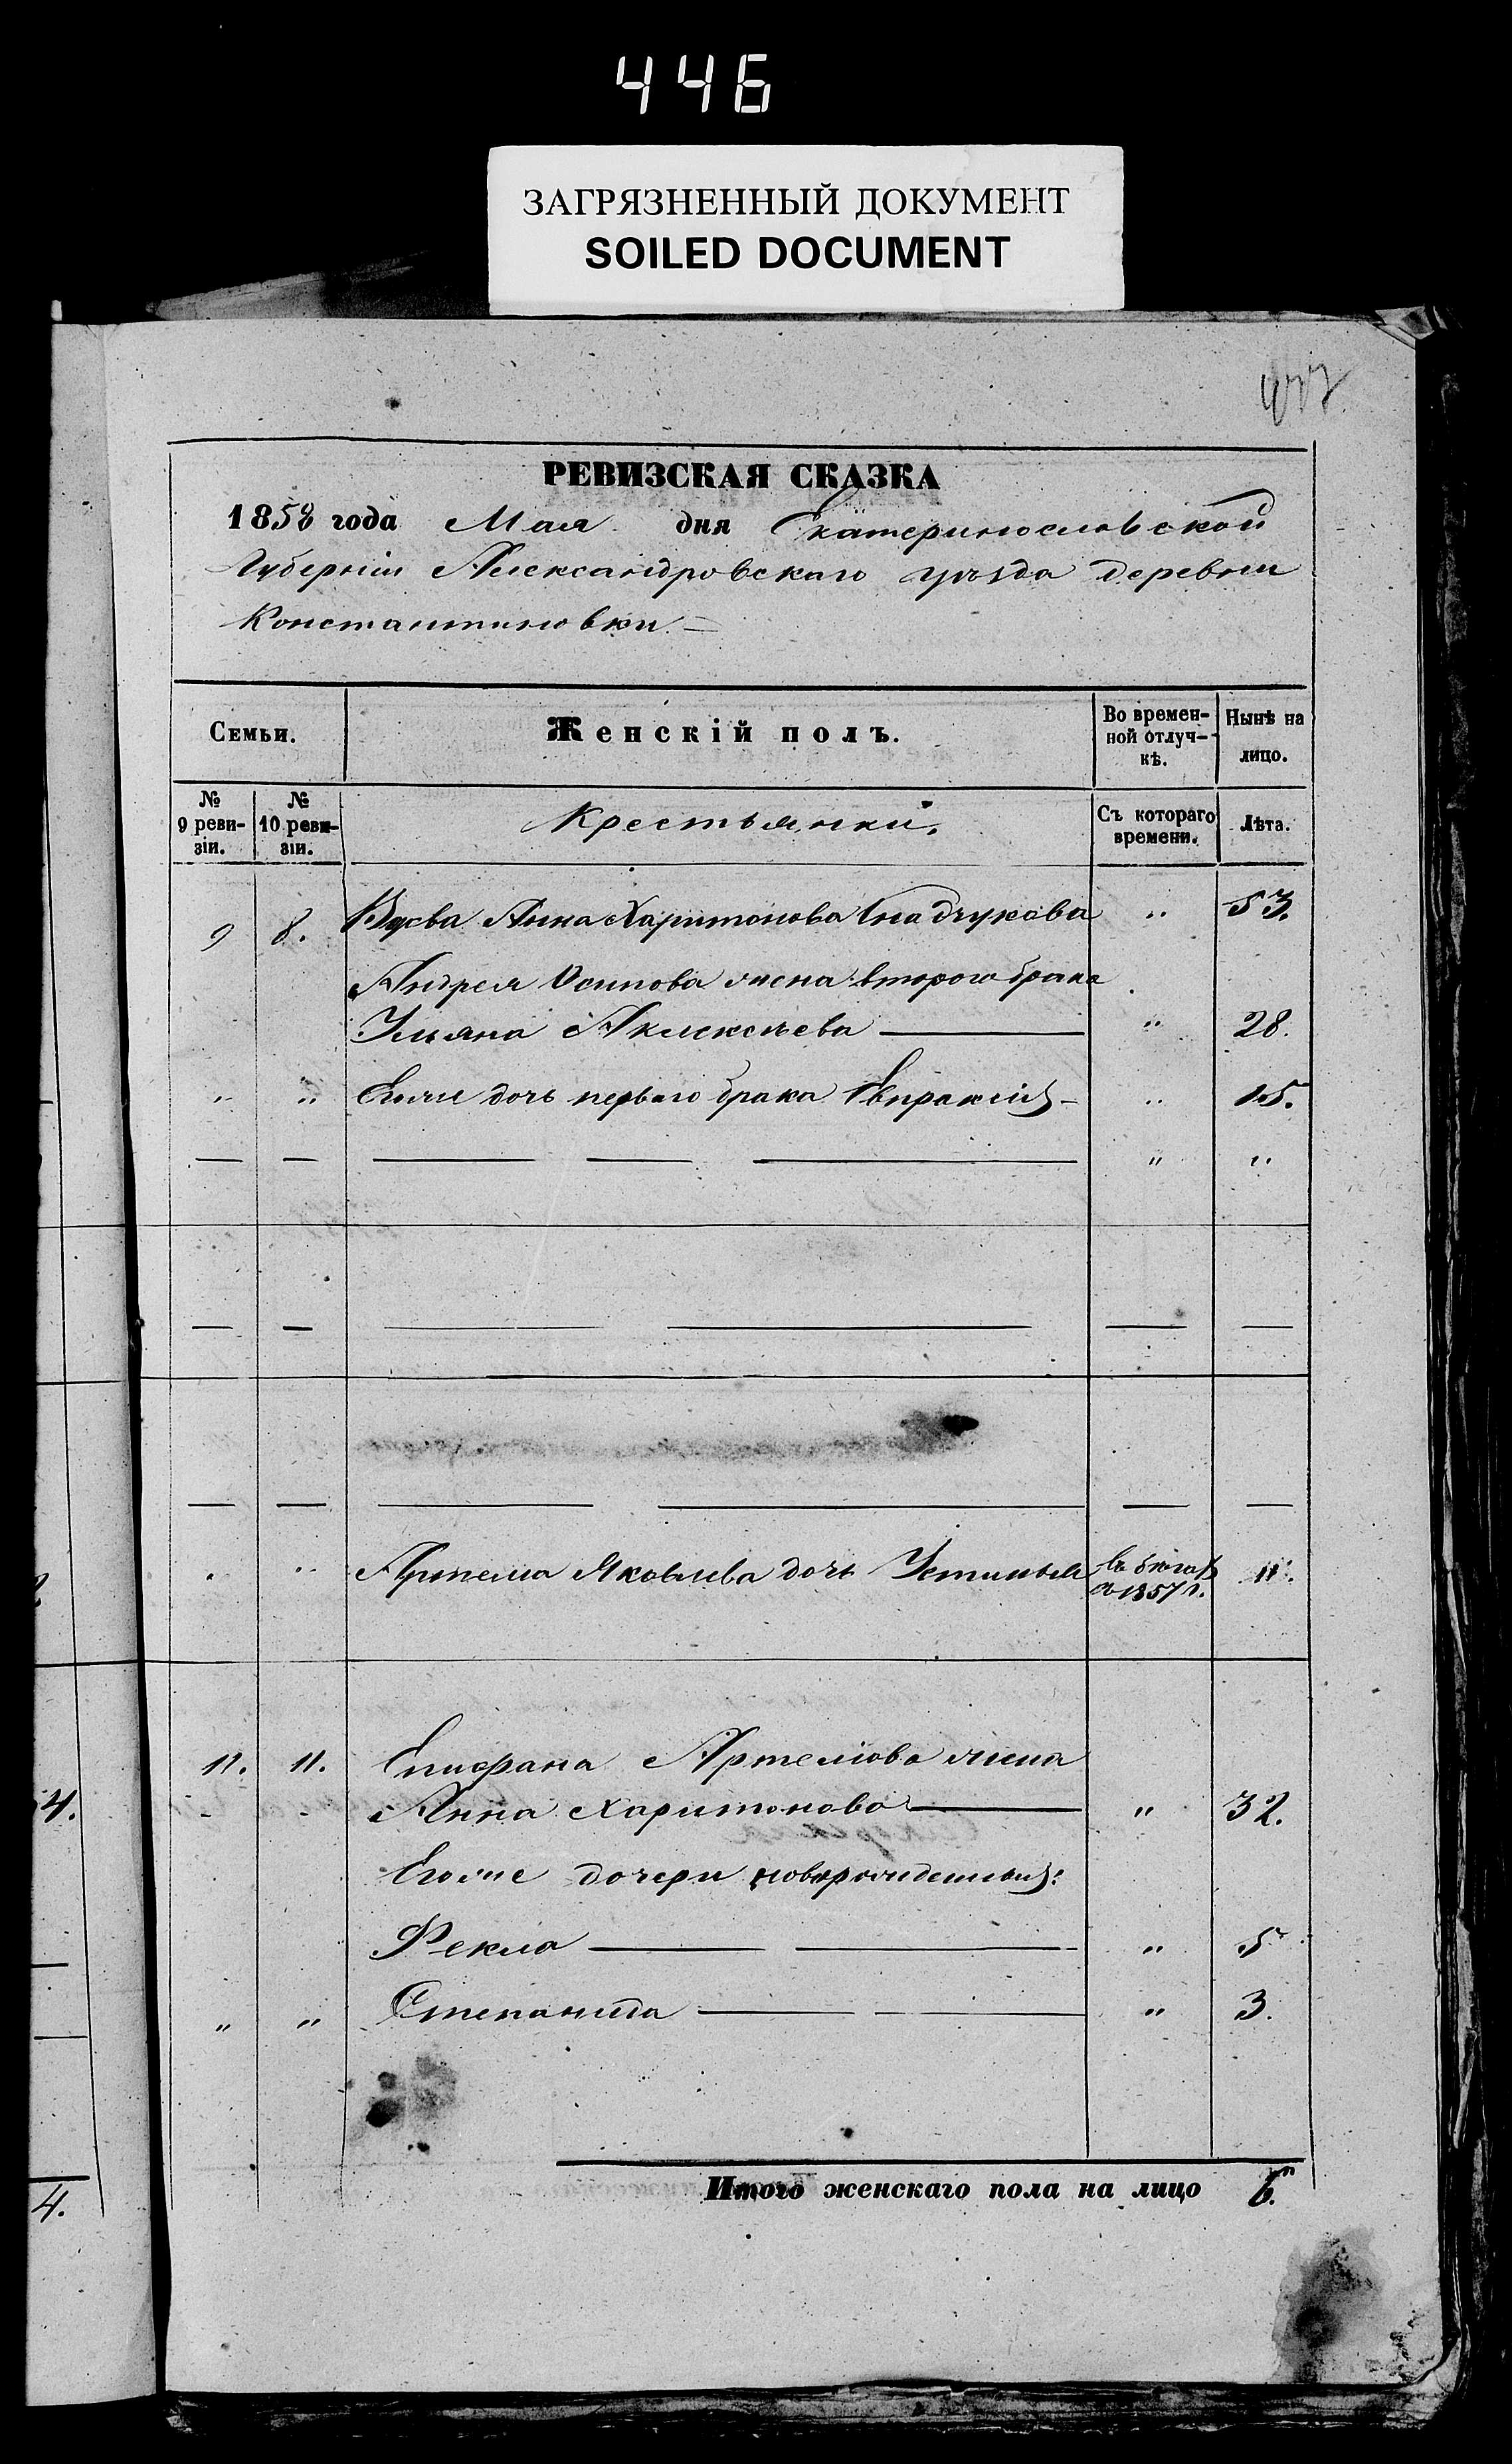 446
ЗАГРЯЗНЕННЫЙ ДОКУМЕНТ
SOILED DOCUMENT
РЕВИЗСКАЯ СКАЗКА
1858 года Мая дня Екатеринославской
Губерніи Александровскаго уѣзда деревни
Константиновки
Семьи.
Женскій полъ.
Во времен-
ной отлуч-
кѣ.
Нынѣ на
лицо.
№
9 реви-
зіи.
№
10 реви-
зіи.
Крестьянки.
Съ котораго
времени.
Лѣта.
9 8. Вдова Анна Харитонова " 53.
Андрея Осипова жена втораго брака
Ульяна Алексѣева " 28.
" " Егоже дочь перваго брака Евпраксія " 15.
" "
" Артема Яковлева дочь Устинья въ бѣгахъ съ 1857 г. "
11. 11. Епифана Артемова жена
Анна Харитонова " 32.
Егоже дочери новорожденныя:
Фекла " 5
" " Степанида " 3.
Итого женскаго пола на лицо 6.
4.
4.